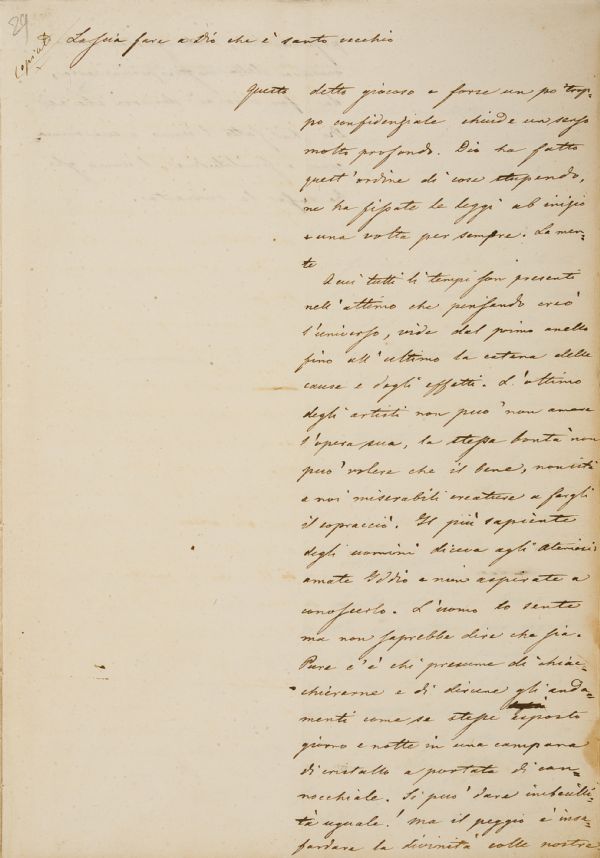 29
Copiato
Lascia fare a Dio che è santo vecchio
Questo detto giocoso e forse un po' trop-
po confidenziale chiude un senso
molto profondo. Dio ha fatto
quest'ordine di cose stupendo,
ne ha fissate le leggi ab inizio
e una volta per sempre. La men-
te
A cui tutti li tempi son presenti
nell'attimo che pensando creò
l'universo, vide dal primo anello
fino all'ultimo la catena delle
cause e degli effetti. L'ottimo
degli artisti non può non amare
l'opera sua, la stessa bontà non
può volere che il bene, non istà
a noi miserabili creature a fargli
il sopracciò. Il più sapiente
degli uomini diceva agli Ateniesi
amate Iddio e non aspirate a
conoscerlo. L'uomo lo sente
ma non saprebbe dire che sia.
Pure c'è chi presume di chiac-
chierarne e di dircene gli anda-
menti come se stesse esposto
giorno e notte in una campana
di cristallo a portata di can-
nocchiale. Si può dare imbecilli-
tà uguale! ma il peggio è insa-
fardare la divinità colle nostre